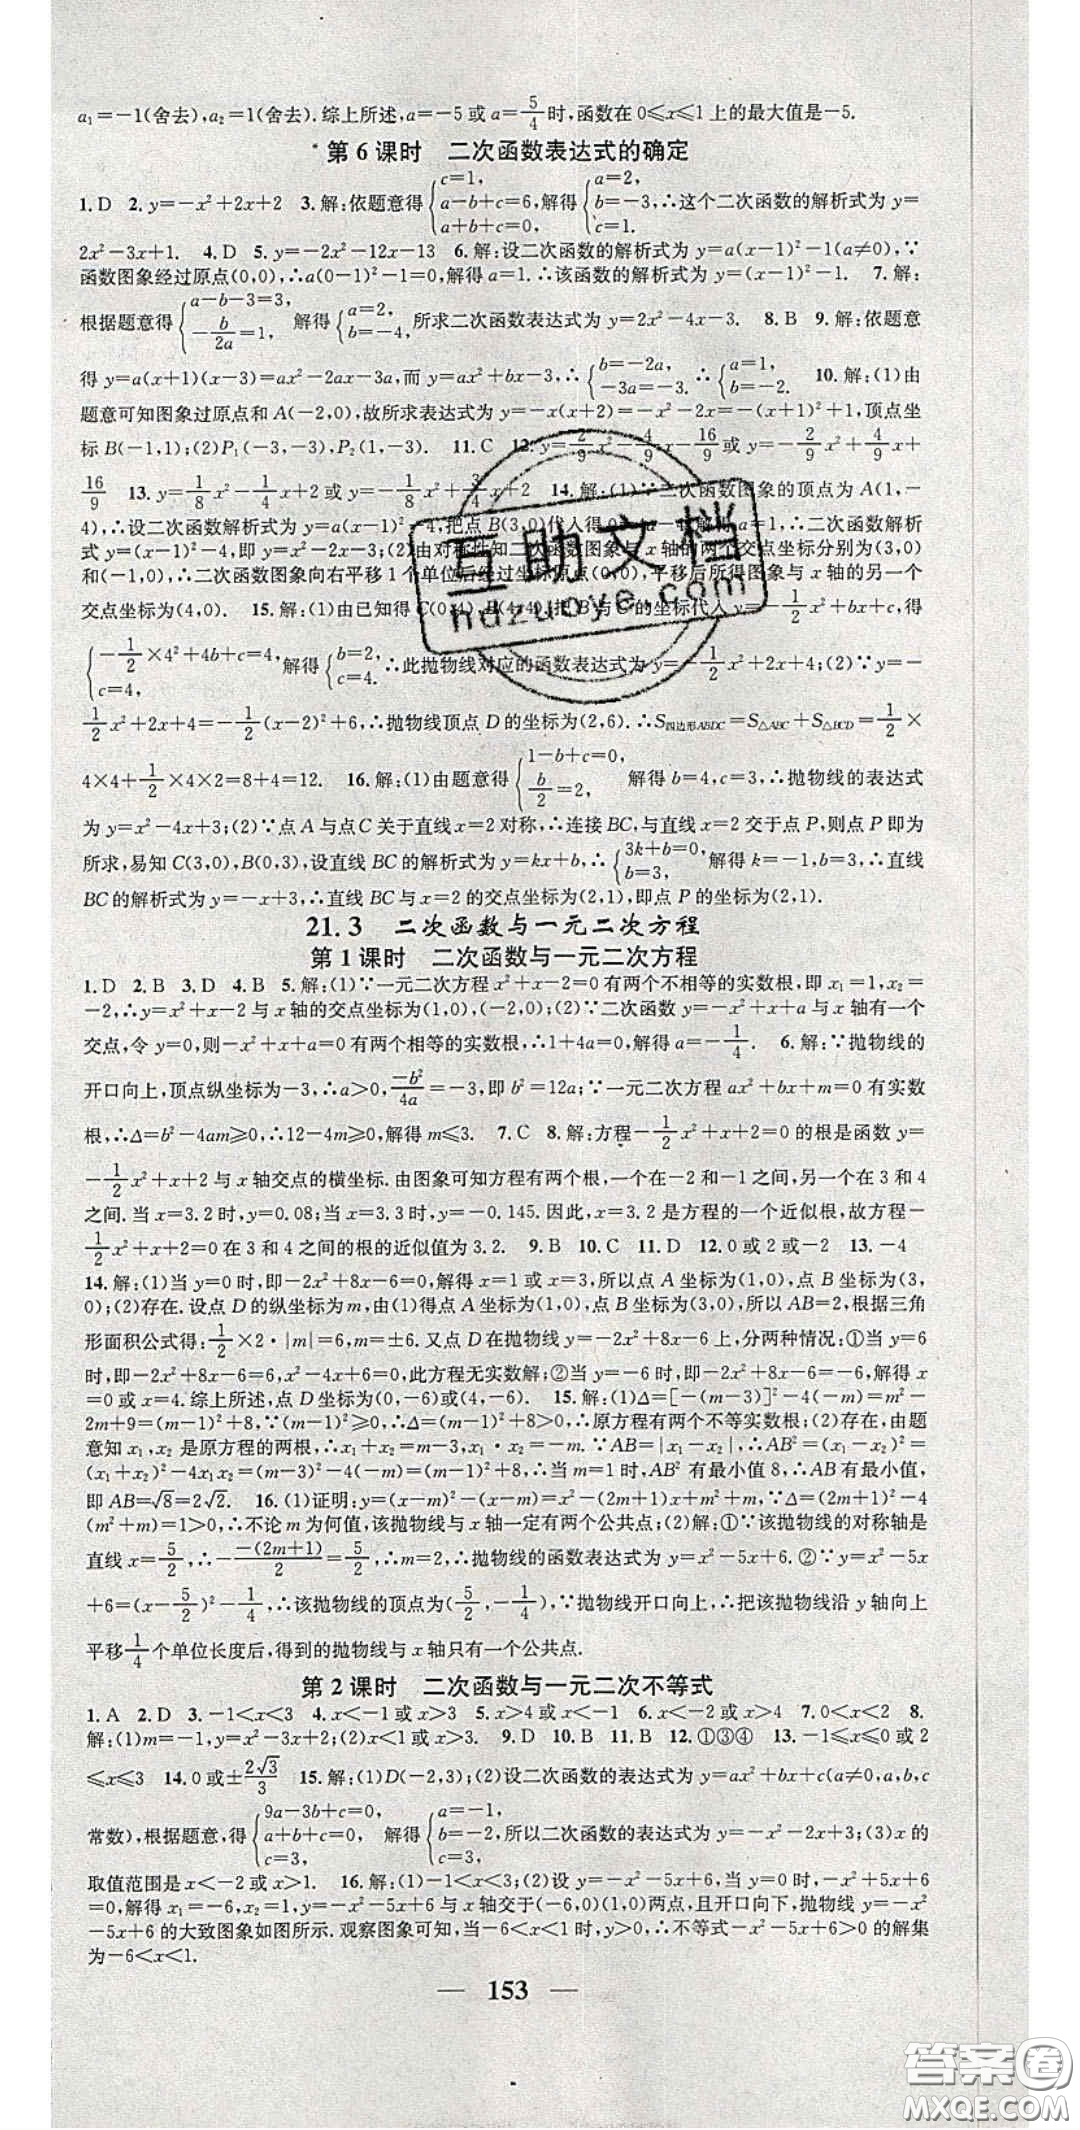 a₁=-1(舍去),a₂=1(舍去).综上所述,a=-5或a=5/4时,函数在0≤x≤1上的最大值是-5.
第6课时 二次函数表达式的确定
1.D 2.y=-x²+2x+2 3.解:依题意得{c=1, a-b+c=6, a+b+c=0, 解得{a=2, b=-3, c=1. ∴这个二次函数的解析式为y=
2x²-3x+1. 4.D 5.y=-2x²-12x-13 6.解:设二次函数的解析式为y=a(x-1)²-1(a≠0),∵
函数图象经过原点(0,0),∴a(0-1)²-1=0,解得a=1.∴该函数的解析式为y=(x-1)²-1. 7.解:
根据题意得{a-b-3=3, -b/2a=1, 解得{a=2, b=-4, 所求二次函数表达式为y=2x²-4x-3. 8.B 9.解:依题意
得y=a(x+1)(x-3)=ax²-2ax-3a,而y=ax²+bx-3,∴{b=-2a, -3a=-3. ∴{a=1, b=-2. 10.解:(1)由
题意可知图象过原点和A(-2,0),故所求表达式为y=-x(x+2)=-x²-2x=-(x+1)²+1,顶点坐
标B(-1,1);(2)P₁(-3,-3),P₂(1,-3). 11.C 12.y=2/9x²-4/9x-16/9或y=-2/9x²+4/9x+
16/9 13.y=1/8x²-1/4x+2或y=-1/8x²+3/4x+2 14.解:(1)∵二次函数图象的顶点为A(1,-
4),∴设二次函数解析式为y=a(x-1)²-4,把点B(3,0)代入得0=4a-4,解得a=1,∴二次函数解析
式y=(x-1)²-4,即y=x²-2x-3;(2)由对称性知二次函数图象与x轴的两个交点坐标分别为(3,0)
和(-1,0)∴二次函数图象向右平移1个单位后经过坐标原点(0,0),平移后所得图象与x轴的另一个
交点坐标为(4,0). 15.解:(1)由已知得C(0,4),B(4,4),把B与C的坐标代入y=-1/2x²+bx+c,得
{-1/2×4²+4b+c=4, c=4, 解得{b=2, c=4. ∴此抛物线对应的函数表达式为y=-1/2x²+2x+4;(2)∵y=-
1/2x²+2x+4=-1/2(x-2)²+6,∴抛物线顶点D的坐标为(2,6).∴S四边形ABDC=S△ABC+S△BCD=1/2×
4×4+1/2×4×2=8+4=12. 16.解:(1)由题意得{1-b+c=0, b/2=2, 解得b=4,c=3,∴抛物线的表达式
为y=x²-4x+3;(2)∵点A与点C关于直线x=2对称,∴连接BC,与x=2交于点P,则点P即为
所求,易知C(3,0),B(0,3),设直线BC的解析式为y=kx+b,∴{3k+b=0, b=3, 解得k=-1,b=3,∴直线
BC的解析式为y=-x+3,∴直线BC与x=2的交点坐标为(2,1),即点P的坐标为(2,1).
21.3 二次函数与一元二次方程
第1课时 二次函数与一元二次方程
1.D 2.B 3.D 4.B 5.解:(1)∵一元二次方程x²+x-2=0有两个不相等的实数根,即x₁=1,x₂=
-2,∴y=x²+x-2与x轴的交点坐标为(1,0),(-2,0);(2)∵二次函数y=-x²+x+a与x轴有一个
交点,令y=0,则-x²+x+a=0有两个相等的实数根,∴1+4a=0,解得a=-1/4. 6.解:∵抛物线的
开口向上,顶点纵坐标为-3,∴a>0,-b²/4a=-3,即b²=12a;∵一元二次方程ax²+bx+m=0有实数
根,∴Δ=b²-4am≥0,∴12-4m≥0,解得m≤3. 7.C 8.解:方程-1/2x²+x+2=0的根是函数y=
-1/2x²+x+2与x轴交点的横坐标.由图象可知方程有两个根,一个在-2和-1之间,另一个在3和4
之间.当x=3.2时,y=0.08;当x=3.3时,y=-0.145.因此,x=3.2是方程的一个近似根,故方程-
1/2x²+x+2=0在3和4之间的根的近似值为3.2. 9.B 10.C 11.D 12.0或2或-2 13.-4
14.解:(1)当y=0时,即-2x²+8x-6=0,解得x=1或x=3,所以点A坐标为(1,0),点B坐标为(3,
0);(2)存在.设点D的纵坐标为m,由(1)得点A坐标为(1,0),点B坐标为(3,0),所以AB=2,根据三角
形面积公式得:1/2×2·|m|=6,m=±6.又点D在抛物线y=-2x²+8x-6上,分两种情况:①当y=6
时,即-2x²+8x-6=6,x²-4x+6=0,此方程无实数解;②当y=-6时,即-2x²+8x-6=-6,解得x
=0或x=4.综上所述,点D坐标为(0,-6)或(4,-6). 15.解:(1)Δ=[-(m-3)]²-4(-m)=m²-
2m+9=(m-1)²+8,∵(m-1)²≥0,∴Δ=(m-1)²+8>0,∴原方程有两个不等实数根;(2)存在,由题
意知x₁,x₂是原方程的两根,∴x₁+x₂=m-3,x₁·x₂=-m.∵AB=|x₁-x₂|,∴AB²=(x₁-x₂)²=
(x₁+x₂)²-4x₁x₂=(m-3)²-4(-m)=(m-1)²+8,∴当m=1时,AB²有最小值8,∴AB有最小值,
即AB=√8=2√2. 16.(1)证明:y=(x-m)²-(x-m)=x²-(2m+1)x+m²+m,∵Δ=(2m+1)²-4
(m²+m)=1>0,∴不论m为何值,该抛物线与x轴一定有两个公共点;(2)解:①∵该抛物线的对称轴是
直线x=5/2,∴-(-(2m+1))/2=5/2,∴m=2,∴抛物线的函数表达式为y=x²-5x+6.②∵y=x²-5x
+6=(x-5/2)²-1/4,∴该抛物线的顶点为(5/2,-1/4),∵抛物线开口向上,∴把该抛物线沿y轴向上
平移1/4个单位长度后,得到的抛物线与x轴只有一个公共点.
第2课时 二次函数与一元二次不等式
1.A 2.D 3.-1<x<3 4.x<-1或x>3 5.x>4或x<-1 6.x<-2或x>4 7.0<x<2 8.
解:(1)m=-1,y=x²-3x+2;(2)x<1或x>3. 9.D 10.B 11.B 12.①③④ 13.-1≤x≤0或2
≤x≤3 14.0或±2√3/3 15.解:(1)D(-2,3);(2)设二次函数的表达式为y=ax²+bx+c(a≠0,a,b,c
常数),根据题意,得{9a-3b+c=0, a+b+c=0, c=3, 解得{a=-1, b=-2, c=3, 所以二次函数的表达式为y=-x²-2x+3;(3)x的
取值范围是x<-2或x>1. 16.解:(1)-1<x<3;(2)设y=-x²-5x+6,当y=0时,-x²-5x+6
=0,解得x₁=-6,x₂=1,∴抛物线y=-x²-5x+6与x轴交于(-6,0)(1,0)两点,且开口向下,抛物线y=-x²
-5x+6的大致图象如图所示.观察图象可知,当-6<x<1时,y>0,∴不等式-x²-5x+6>0的解集
为-6<x<1.
— 153 —
互助文档
hdzuoye.com
答案圈
MXQE.COM